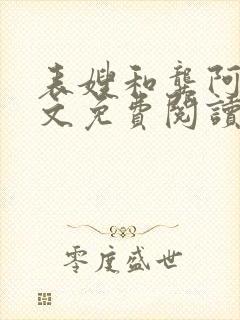 表嫂和龔阿
文免費閱讀
零度盛世